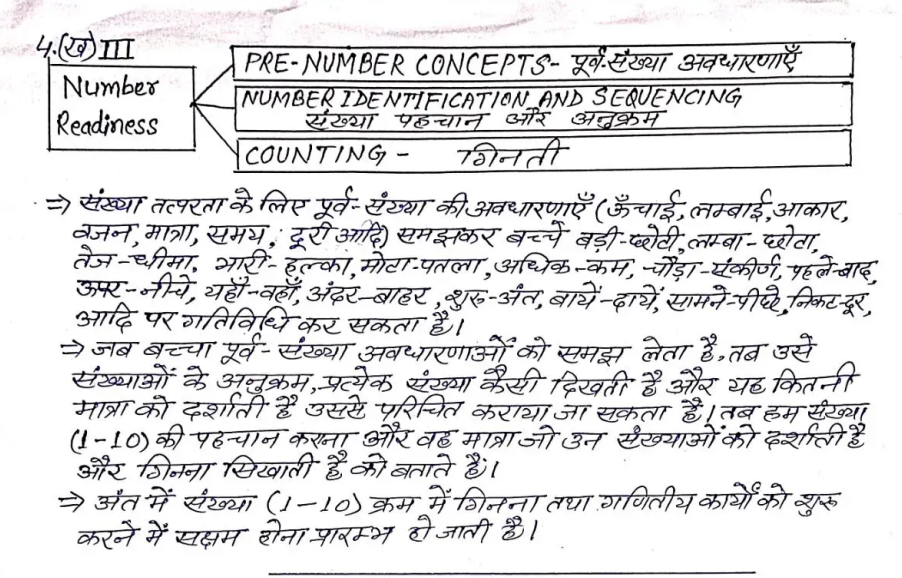 4.(ख) III
Number
Readiness
PRE-NUMBER CONCEPTS- पूर्व-संख्या अवधारणाएँ
NUMBER IDENTIFICATION AND SEQUENCING
संख्या पहचान और अनुक्रम
COUNTING - गिनती
⇒ संख्या तत्परता के लिए पूर्व-संख्या की अवधारणाएँ (ऊँचाई, लम्बाई, आकार,
वजन, मात्रा, समय, दूरी आदि) समझकर बच्चे बड़ी-छोटी, लम्बा-छोटा,
तेज-धीमा, भारी-हल्का, मोटा-पतला, अधिक-कम, चौड़ा-संकीर्ण, पहले-बाद,
ऊपर-नीचे, यहाँ-वहाँ, अंदर-बाहर, शुरु-अंत, बायें-दायें, सामने-पीछे, निकट-दूर,
आदि पर गतिविधि कर सकता है।
⇒ जब बच्चा पूर्व-संख्या अवधारणाओं को समझ लेता है, तब उसे
संख्याओं के अनुक्रम, प्रत्येक संख्या कैसी दिखती है और यह कितनी
मात्रा को दर्शाती है उससे परिचित कराया जा सकता है। तब हम संख्या
(1-10) की पहचान करना और वह मात्रा जो उन संख्याओं को दर्शाती है
और गिनना सिखाती है को बताते हैं।
⇒ अंत में संख्या (1-10) क्रम में गिनना तथा गणितीय कार्यों को शुरू
करने में सक्षम होना प्रारम्भ हो जाती है।